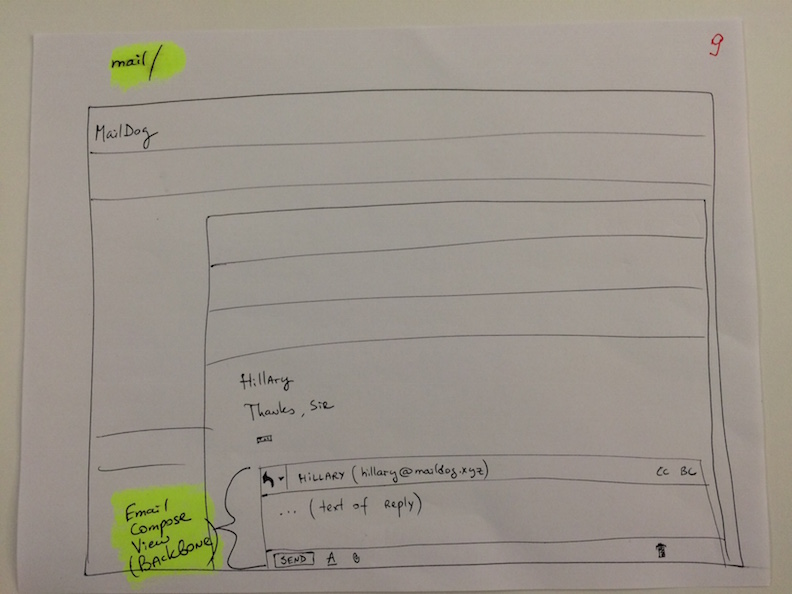 mail/
9
MailDog
Hillary
Thanks, Sir
HILLARY (hillary@maildog.xyz) CC BC
... (text of Reply)
SEND A
Email
Compose
View
(BACKBONE)